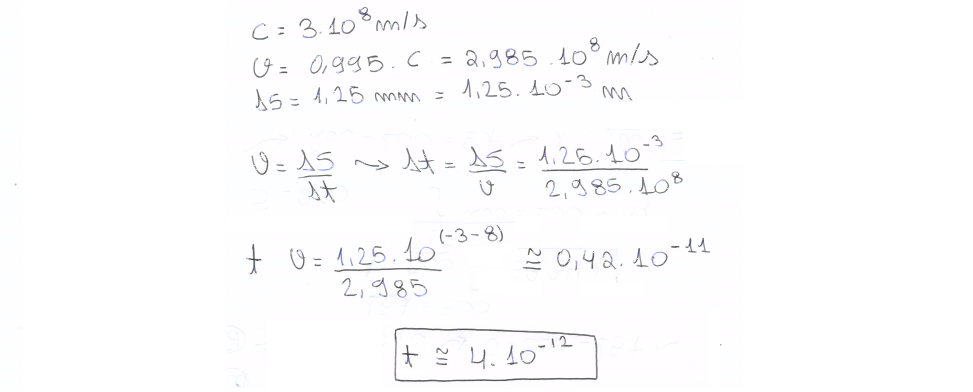 C = 3.10⁸ m/s
v = 0,995 . C = 2,985 .10⁸ m/s
ΔS = 1,25 mm = 1,25. 10⁻³ m
v = ΔS/Δt ⤳ Δt = ΔS/v = 1,25.10⁻³/2,985.10⁸
t v = 1,25.10⁽⁻³⁻⁸⁾/2,985 ≅ 0,42.10⁻¹¹
t ≅ 4.10⁻¹²